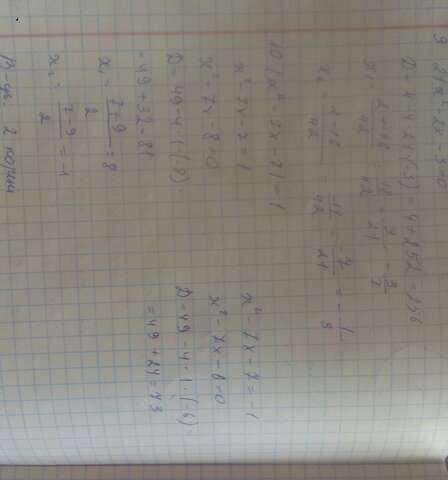 9. 21x² - 2x - 3 = 0
D = 4 - 4·21·(-3) = 4 + 252 = 256
x₁ = (2+16)/42 = 18/42 = 9/21 = 3/7
x₂ = (2-16)/42 = -14/42 = -7/21 = -1/3
10. |x² - 7x - 7| = 1
x² - 7x - 7 = 1
x² - 7x - 8 = 0
D = 49 - 4·1·(-8)
= 49 + 32 = 81
x₁ = (7+9)/2 = 8
x₂ = (7-9)/2 = -1
x² - 7x - 7 = -1
x² - 7x - 6 = 0
D = 49 - 4·1·(-6)
= 49 + 24 = 73
В-дь: 2